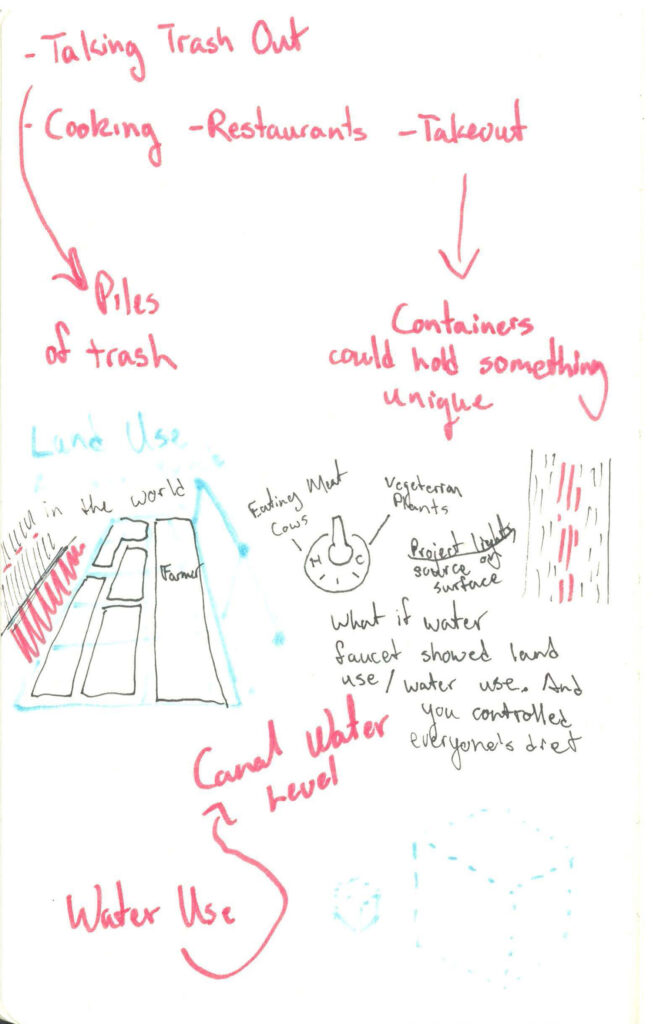 - Taking Trash Out
- Cooking - Restaurants - Takeout
Piles
of trash
Containers
could hold something
unique
Land Use
in the world
Farmer
Eating Meat
Cows
Vegeterian
Plants
H C
Project Lights
source on
surface
What if water
faucet showed land
use / water use. And
you controlled
everyone's diet
Canal Water
Level
Water Use